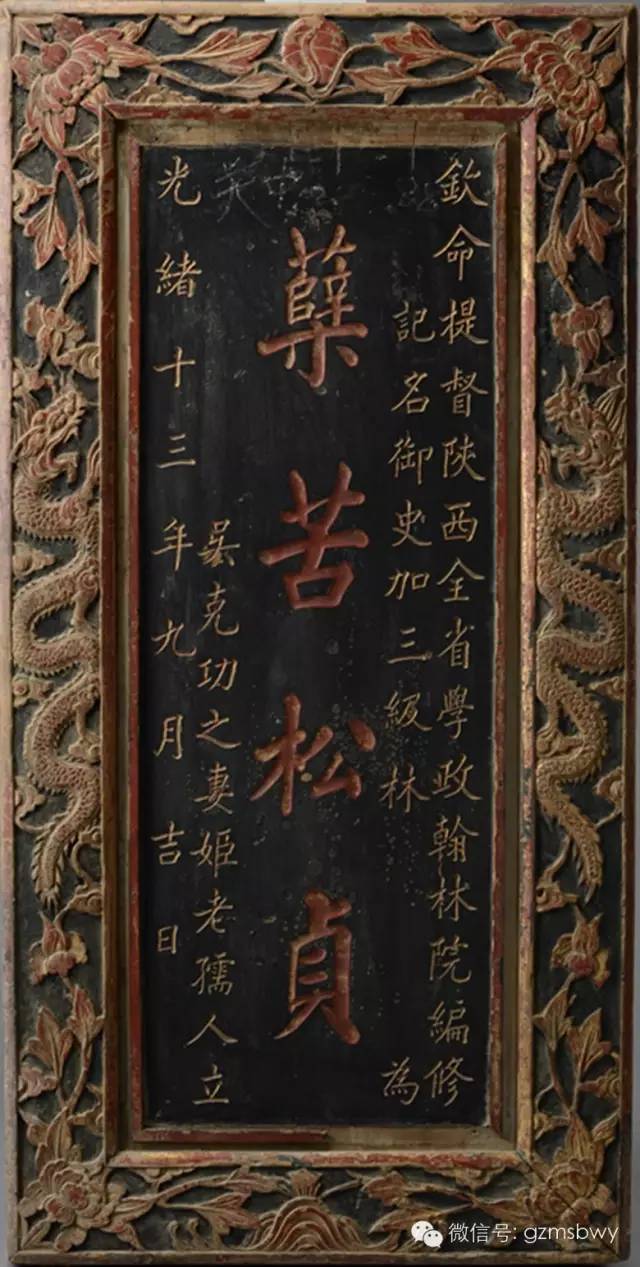 欽命提督陝西全省學政翰林院編修
記名御史加三級林為
蘗苦松貞
克功之妻姬老孺人立
光緒十三年九月吉日
微信号: gzmsbwy